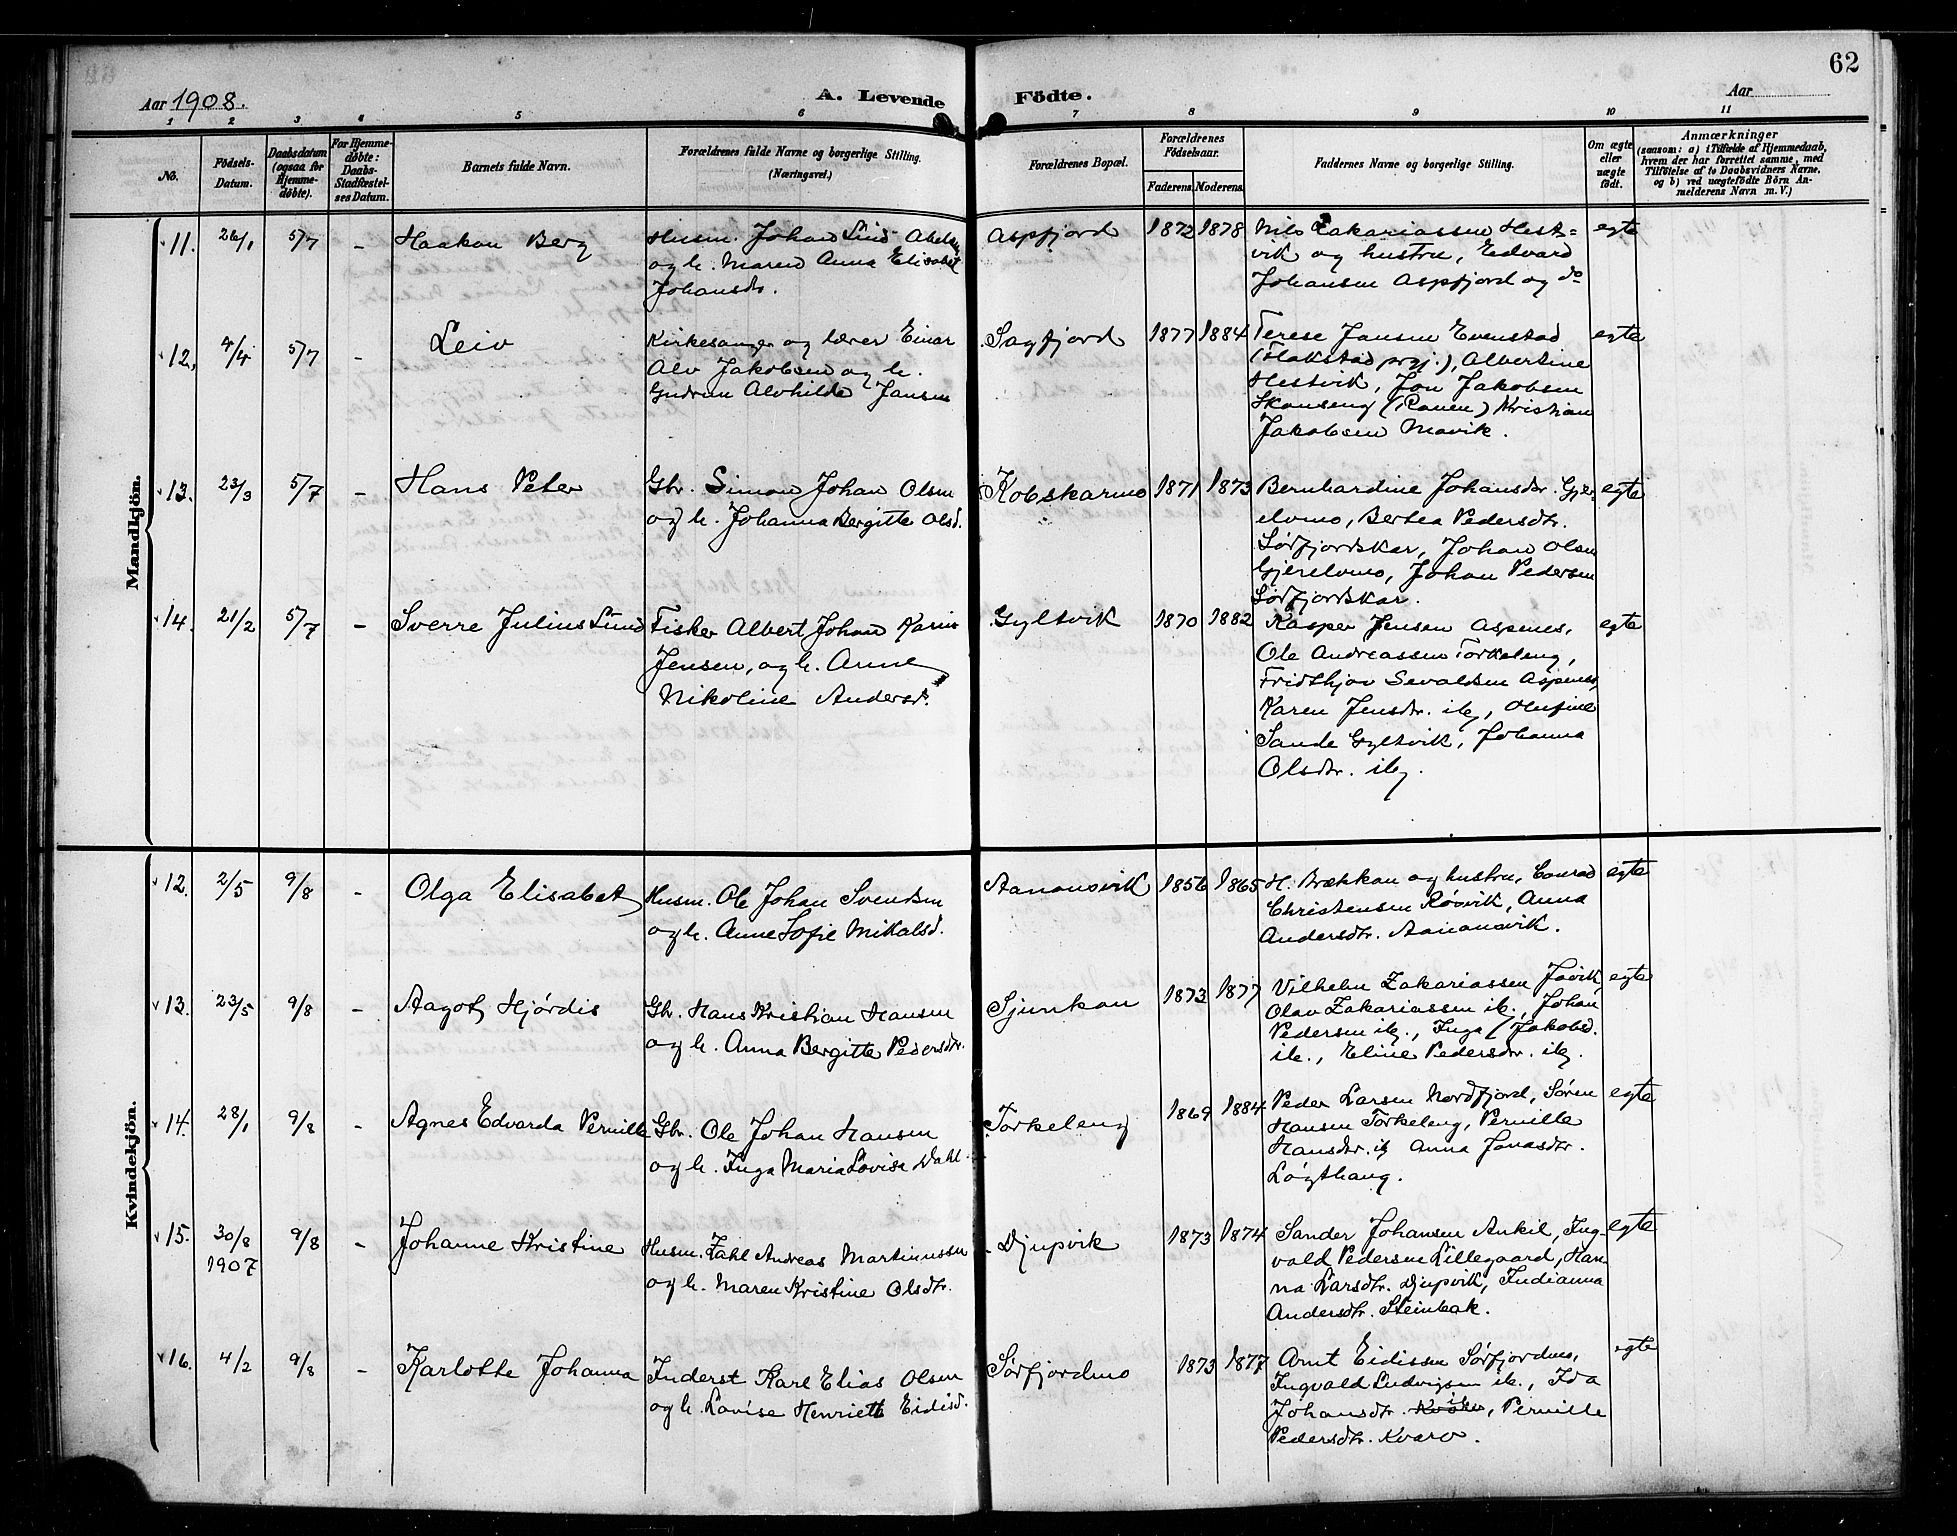 62
Aar 1908.
A. Levende
Födte.
Aar
1 2 3 4 5 6 7 8 9 10 11
No.
Födsels-
Datum.
Daabsdatum
(ogsaa for
Hjemme-
døbte).
For Hjemme-
døbte:
Daabs-
Stadfæstel-
ses Datum.
Barnets fulde Navn.
Forældrenes fulde Navne og borgerlige Stilling.
(Næringsvei.)
Forældrenes Bopæl.
Forældrenes
Födselsaar.
Faderens. Moderens.
Faddernes Navne og borgerlige Stilling.
Om ægte
eller
uægte
født.
Anmærkninger
(saasom: a) i Tilfælde af Hjemmedaab,
hvem der har forrettet samme, med
Tilføielse af to Daabsvidners Navne,
og b) ved uægtefödte Börn An-
melderens Navn m. V.)
Mandkjön.
11. 26/1 5/7 - Haakon Berg
Husm. Johan Lind
og h. Maren Anna Elisabet
Johansdr.
Aspfjord 1872 1878
Nils Zakariassen Hest=
vik og hustru, Edvard
Johansen Aspfjord og do
egte
12. 4/4 5/7 - Leiv
Kirkesanger og lærer Einar
Alv Jakobsen og h.
Gudrun Alvhilde Jansen
Sagfjord 1877 1884
Terese Jansen Evenstad
(Flakstad prgj.), Albertine
Hestvik, Jon Jakobsen
Skonseng (Ranen) Kristian
Jakobsen Movik.
egte
13. 23/3 5/7 - Hans Peter
Gbr. Simon Johan Olsen
og h. Johanna Bergitte Olsd.
Kobskarmo 1871 1873
Bernhardine Johansdr. Gjer-
elvmo, Bertea Pedersdtr.
Sørfjordskar, Johan Olsen
Gjerelvmo, Johan Pedersen
Sørfjordskar.
egte
14. 21/2 5/7 - Sverre Julius Lund
Fisker Albert Johan
Jensen, og h. Anne
Nikoline Andersd.
Gyltvik 1870 1882
Kasper Jensen Aspenes,
Ole Andreassen Torkeleng,
Fridthjov Sevaldsen Aspenes,
Karen Jensdr. ib., Olufine
Sande Gyltvik, Johanna
Olsdtr. ib.
egte
Kvindekjön.
12. 2/5 9/8 - Olga Elisabet
Husm. Ole Johan Svendsen
og h. Anne Sofie Mikalsd.
Aanonsvik 1856 1865
H. Brækkan og hustru, Conrad
Christensen Røsvik, Anna
Andersdtr. Aanonsvik.
egte
13. 23/5 9/8 - Aagot Hjørdis
Gbr. Hans Kristian Hansen
og h. Anna Bergitte Pedersdtr.
Sjunkan 1873 1877
Vilhelm Zakariassen Movik,
Olav Zakariassen ib., Johan
Pedersen ib., Inga Jakobsd.
ib., Eline Pedersdr. ib.
egte
14. 28/1 9/8 - Agnes Edvarda Pernille
Gbr. Ole Johan Hansen
og h. Inga Maria Lovise Dahl.
Torkeleng 1869 1884
Peder Larsen Nordfjord, Søren
Hansen Torkeleng, Pernille
Hansdtr. ib Anna Jonasdtr.
Løgthaug.
egte
15. 30/8
1907
9/8 - Johanne Kristine
Husm. Zahl Andreas Martinussen
og h. Maren Kristine Olsdtr.
Djupvik 1873 1874
Sander Johansen Ankil, Ing-
vald Pedersen Lillegaard, Han-
na Larsdtr. Djupvik, Indianna
Andersdtr. Steinbak.
egte
16. 4/2 9/8 - Karlotte Johanna
Inderst Karl Elias Olsen
og h. Lovise Henriette Eidisd.
Sørfjordmo 1873 1877
Arnt Eidissen Sørfjordmo,
Ingvald Ludvigsen ib., Ida
Johansdtr. ib., Pernille
Pedersdtr. Kvarv.
egte